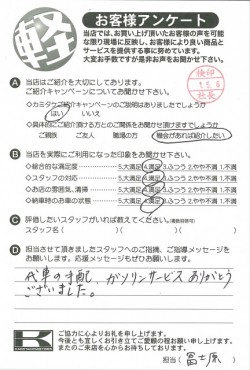 軽
お客様アンケート
当店では、お買い上げ頂いたお客様の声を可能
な限り現場に反映し、お客様により良い商品と
サービスを提供する事に努めています。
大変お手数ですが是非お声をお聞かせ下さい。
検印
社長
A 当店はご紹介を大切にしております。
ご紹介キャンペーンについてお聞かせ下さい。
◇カミタケご紹介キャンペーンのご説明はありましたでしょうか
はい いいえ
◇具体的にご紹介頂ける方とのご関係をお聞かせ頂けますでしょうか
ご親族 ご友人 職場の方 機会があれば紹介したい
B 当店を実際にご利用になった印象をお聞かせ下さい。
◇総合的な満足度 5.大満足 4.満足 3.ふつう 2.やや不満 1.不満
◇スタッフの対応 5.大満足 4.満足 3.ふつう 2.やや不満 1.不満
◇お店の雰囲気、清掃 5.大満足 4.満足 3.ふつう 2.やや不満 1.不満
◇納車時のお車の状態 5.大満足 4.満足 3.ふつう 2.やや不満 1.不満
C 評価したいスタッフがいれば教えてください。(複数回答可)
スタッフ名( )( )( )
D 担当させて頂きましたスタッフへのご指摘、ご指導メッセージを
お願いします。応援メッセージもぜひお願いします！
代車の手配、ガソリンサービス ありがとう
ございました。
K
ご協力に心よりお礼を申し上げます。
今後とも宜しくお引き立てご愛顧の程お願い申し上げます。
またのご来店を心からお待ちしております。
担当( 冨士原 )